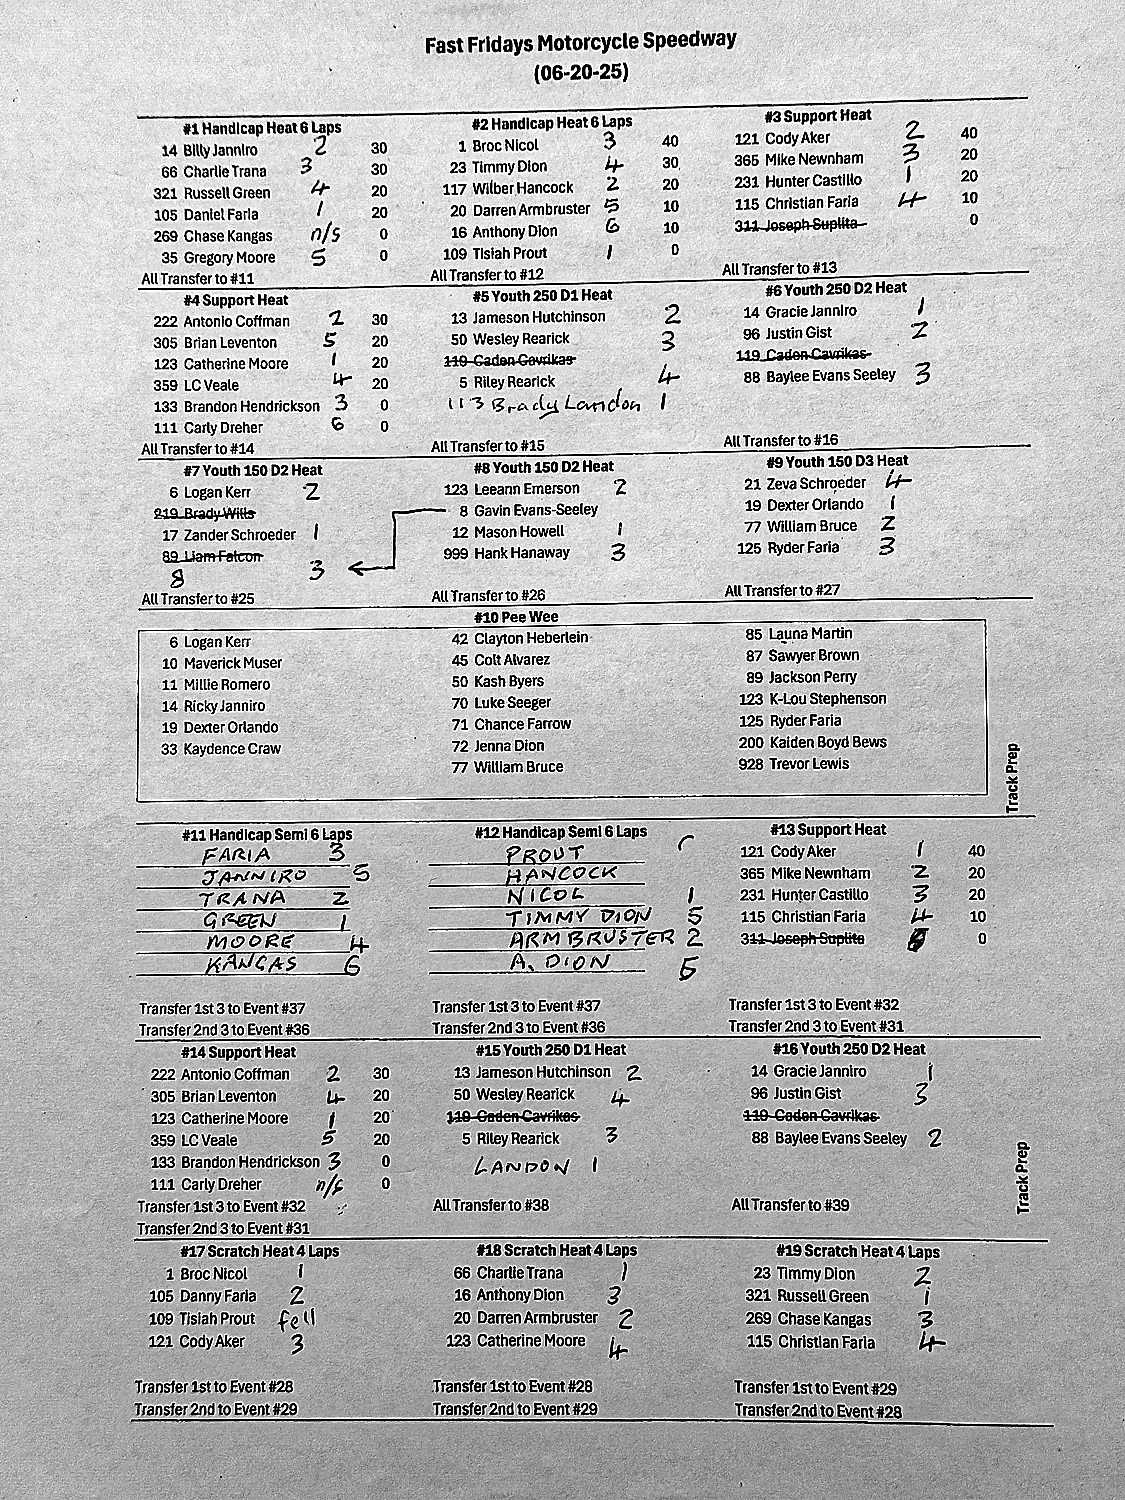 Fast Fridays Motorcycle Speedway
(06-20-25)
#1 Handicap Heat 6 Laps
14 Billy Janniro 2 30
66 Charlie Trana 3 30
321 Russell Green 4 20
105 Daniel Faria 1 20
269 Chase Kangas n/s 0
35 Gregory Moore 5 0
All Transfer to #11
#2 Handicap Heat 6 Laps
1 Broc Nicol 3 40
23 Timmy Dion 4 30
117 Wilber Hancock 2 20
20 Darren Armbruster 5 10
16 Anthony Dion 6 10
109 Tisiah Prout 1 0
All Transfer to #12
#3 Support Heat
121 Cody Aker 2 40
365 Mike Newnham 3 20
231 Hunter Castillo 1 20
115 Christian Faria 4 10
311 Joseph Suplita 0
All Transfer to #13
#4 Support Heat
222 Antonio Coffman 2 30
305 Brian Leventon 5 20
123 Catherine Moore 1 20
359 LC Veale 4 20
133 Brandon Hendrickson 3 0
111 Carly Dreher 6 0
All Transfer to #14
#5 Youth 250 D1 Heat
13 Jameson Hutchinson 2
50 Wesley Rearick 3
119 Caden Cavrikas
5 Riley Rearick 4
113 Brady Landon 1
All Transfer to #15
#6 Youth 250 D2 Heat
14 Gracie Janniro 1
96 Justin Gist 2
119 Caden Cavrikas
88 Baylee Evans Seeley 3
All Transfer to #16
#7 Youth 150 D2 Heat
6 Logan Kerr 2
219 Brady Wills
17 Zander Schroeder 1
89 Liam Falcon
8 3
All Transfer to #25
#8 Youth 150 D2 Heat
123 Leeann Emerson 2
8 Gavin Evans-Seeley
12 Mason Howell 1
999 Hank Hanaway 3
All Transfer to #26
#9 Youth 150 D3 Heat
21 Zeva Schroeder 4
19 Dexter Orlando 1
77 William Bruce 2
125 Ryder Faria 3
All Transfer to #27
#10 Pee Wee
6 Logan Kerr
10 Maverick Muser
11 Millie Romero
14 Ricky Janniro
19 Dexter Orlando
33 Kaydence Craw
42 Clayton Heberlein
45 Colt Alvarez
50 Kash Byers
70 Luke Seeger
71 Chance Farrow
72 Jenna Dion
77 William Bruce
85 Launa Martin
87 Sawyer Brown
89 Jackson Perry
123 K-Lou Stephenson
125 Ryder Faria
200 Kaiden Boyd Bews
928 Trevor Lewis
Track Prep
#11 Handicap Semi 6 Laps
FARIA 3
JANNIRO 5
TRANA 2
GREEN 1
MOORE 4
KANGAS 6
Transfer 1st 3 to Event #37
Transfer 2nd 3 to Event #36
#12 Handicap Semi 6 Laps
PROUT
HANCOCK
NICOL 1
TIMMY DION 5
ARMBRUSTER 2
A. DION
Transfer 1st 3 to Event #37
Transfer 2nd 3 to Event #36
#13 Support Heat
121 Cody Aker 1 40
365 Mike Newnham 2 20
231 Hunter Castillo 3 20
115 Christian Faria 4 10
311 Joseph Suplita 0
Transfer 1st 3 to Event #32
Transfer 2nd 3 to Event #31
#14 Support Heat
222 Antonio Coffman 2 30
305 Brian Leventon 4 20
123 Catherine Moore 1 20
359 LC Veale 5 20
133 Brandon Hendrickson 3 0
111 Carly Dreher n/s 0
Transfer 1st 3 to Event #32
Transfer 2nd 3 to Event #31
#15 Youth 250 D1 Heat
13 Jameson Hutchinson 2
50 Wesley Rearick 4
119 Caden Cavrikas
5 Riley Rearick 3
LANDON 1
All Transfer to #38
#16 Youth 250 D2 Heat
14 Gracie Janniro 1
96 Justin Gist 3
119 Caden Cavrikas
88 Baylee Evans Seeley 2
All Transfer to #39
Track Prep
#17 Scratch Heat 4 Laps
1 Broc Nicol 1
105 Danny Faria 2
109 Tisiah Prout fell
121 Cody Aker 3
Transfer 1st to Event #28
Transfer 2nd to Event #29
#18 Scratch Heat 4 Laps
66 Charlie Trana 1
16 Anthony Dion 3
20 Darren Armbruster 2
123 Catherine Moore 4
Transfer 1st to Event #28
Transfer 2nd to Event #29
#19 Scratch Heat 4 Laps
23 Timmy Dion 2
321 Russell Green 1
269 Chase Kangas 3
115 Christian Faria 4
Transfer 1st to Event #29
Transfer 2nd to Event #28